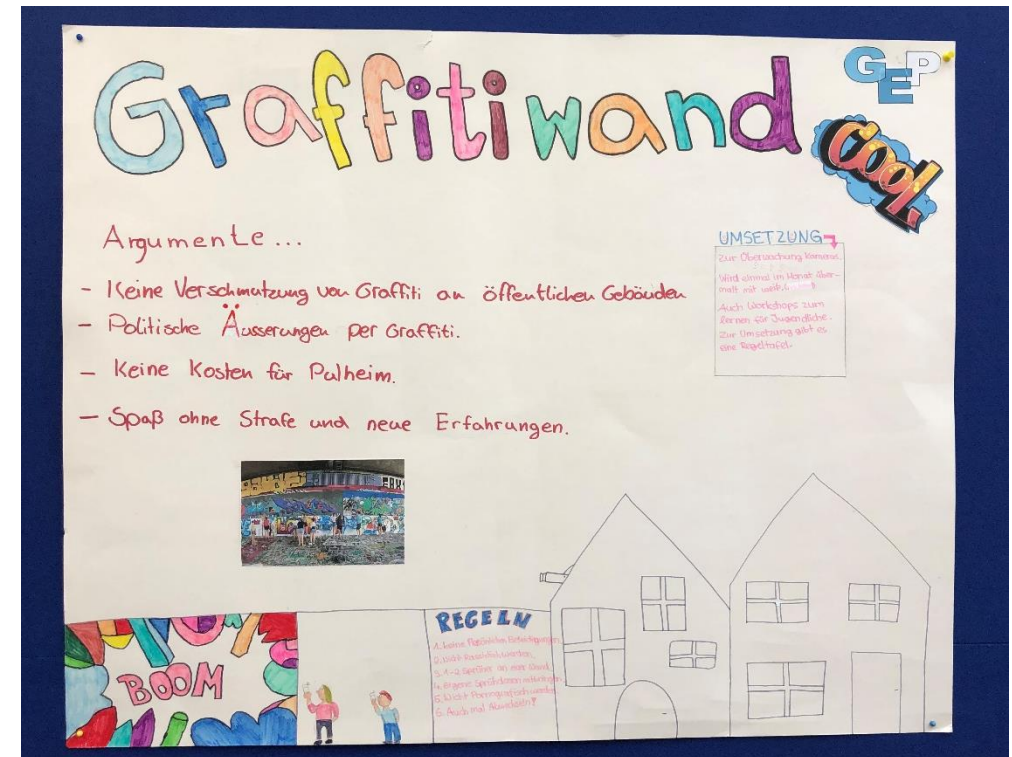 Graffitiwand
GEP
COOL
Argumente...
- Keine Verschmutzung von Graffiti an öffentlichen Gebäuden
- Politische Äusserungen per Graffiti.
- Keine Kosten für Pulheim.
- Spaß ohne Strafe und neue Erfahrungen.
UMSETZUNG
Zur Überwachung Kameras.
Wird einmal im Monat über-
malt mit
Auch Workshops zum
lernen für Jugendliche.
Zur Umsetzung gibt es
eine Regeltafel.
BOOM
REGELN
1. keine Persönlichen Beleidigungen
2. Nicht
3. 1-2 Sprüher an einer Wand
4. eigene Sprühdosen mitbringen
5. Nicht
6. Auch mal Abwechseln!